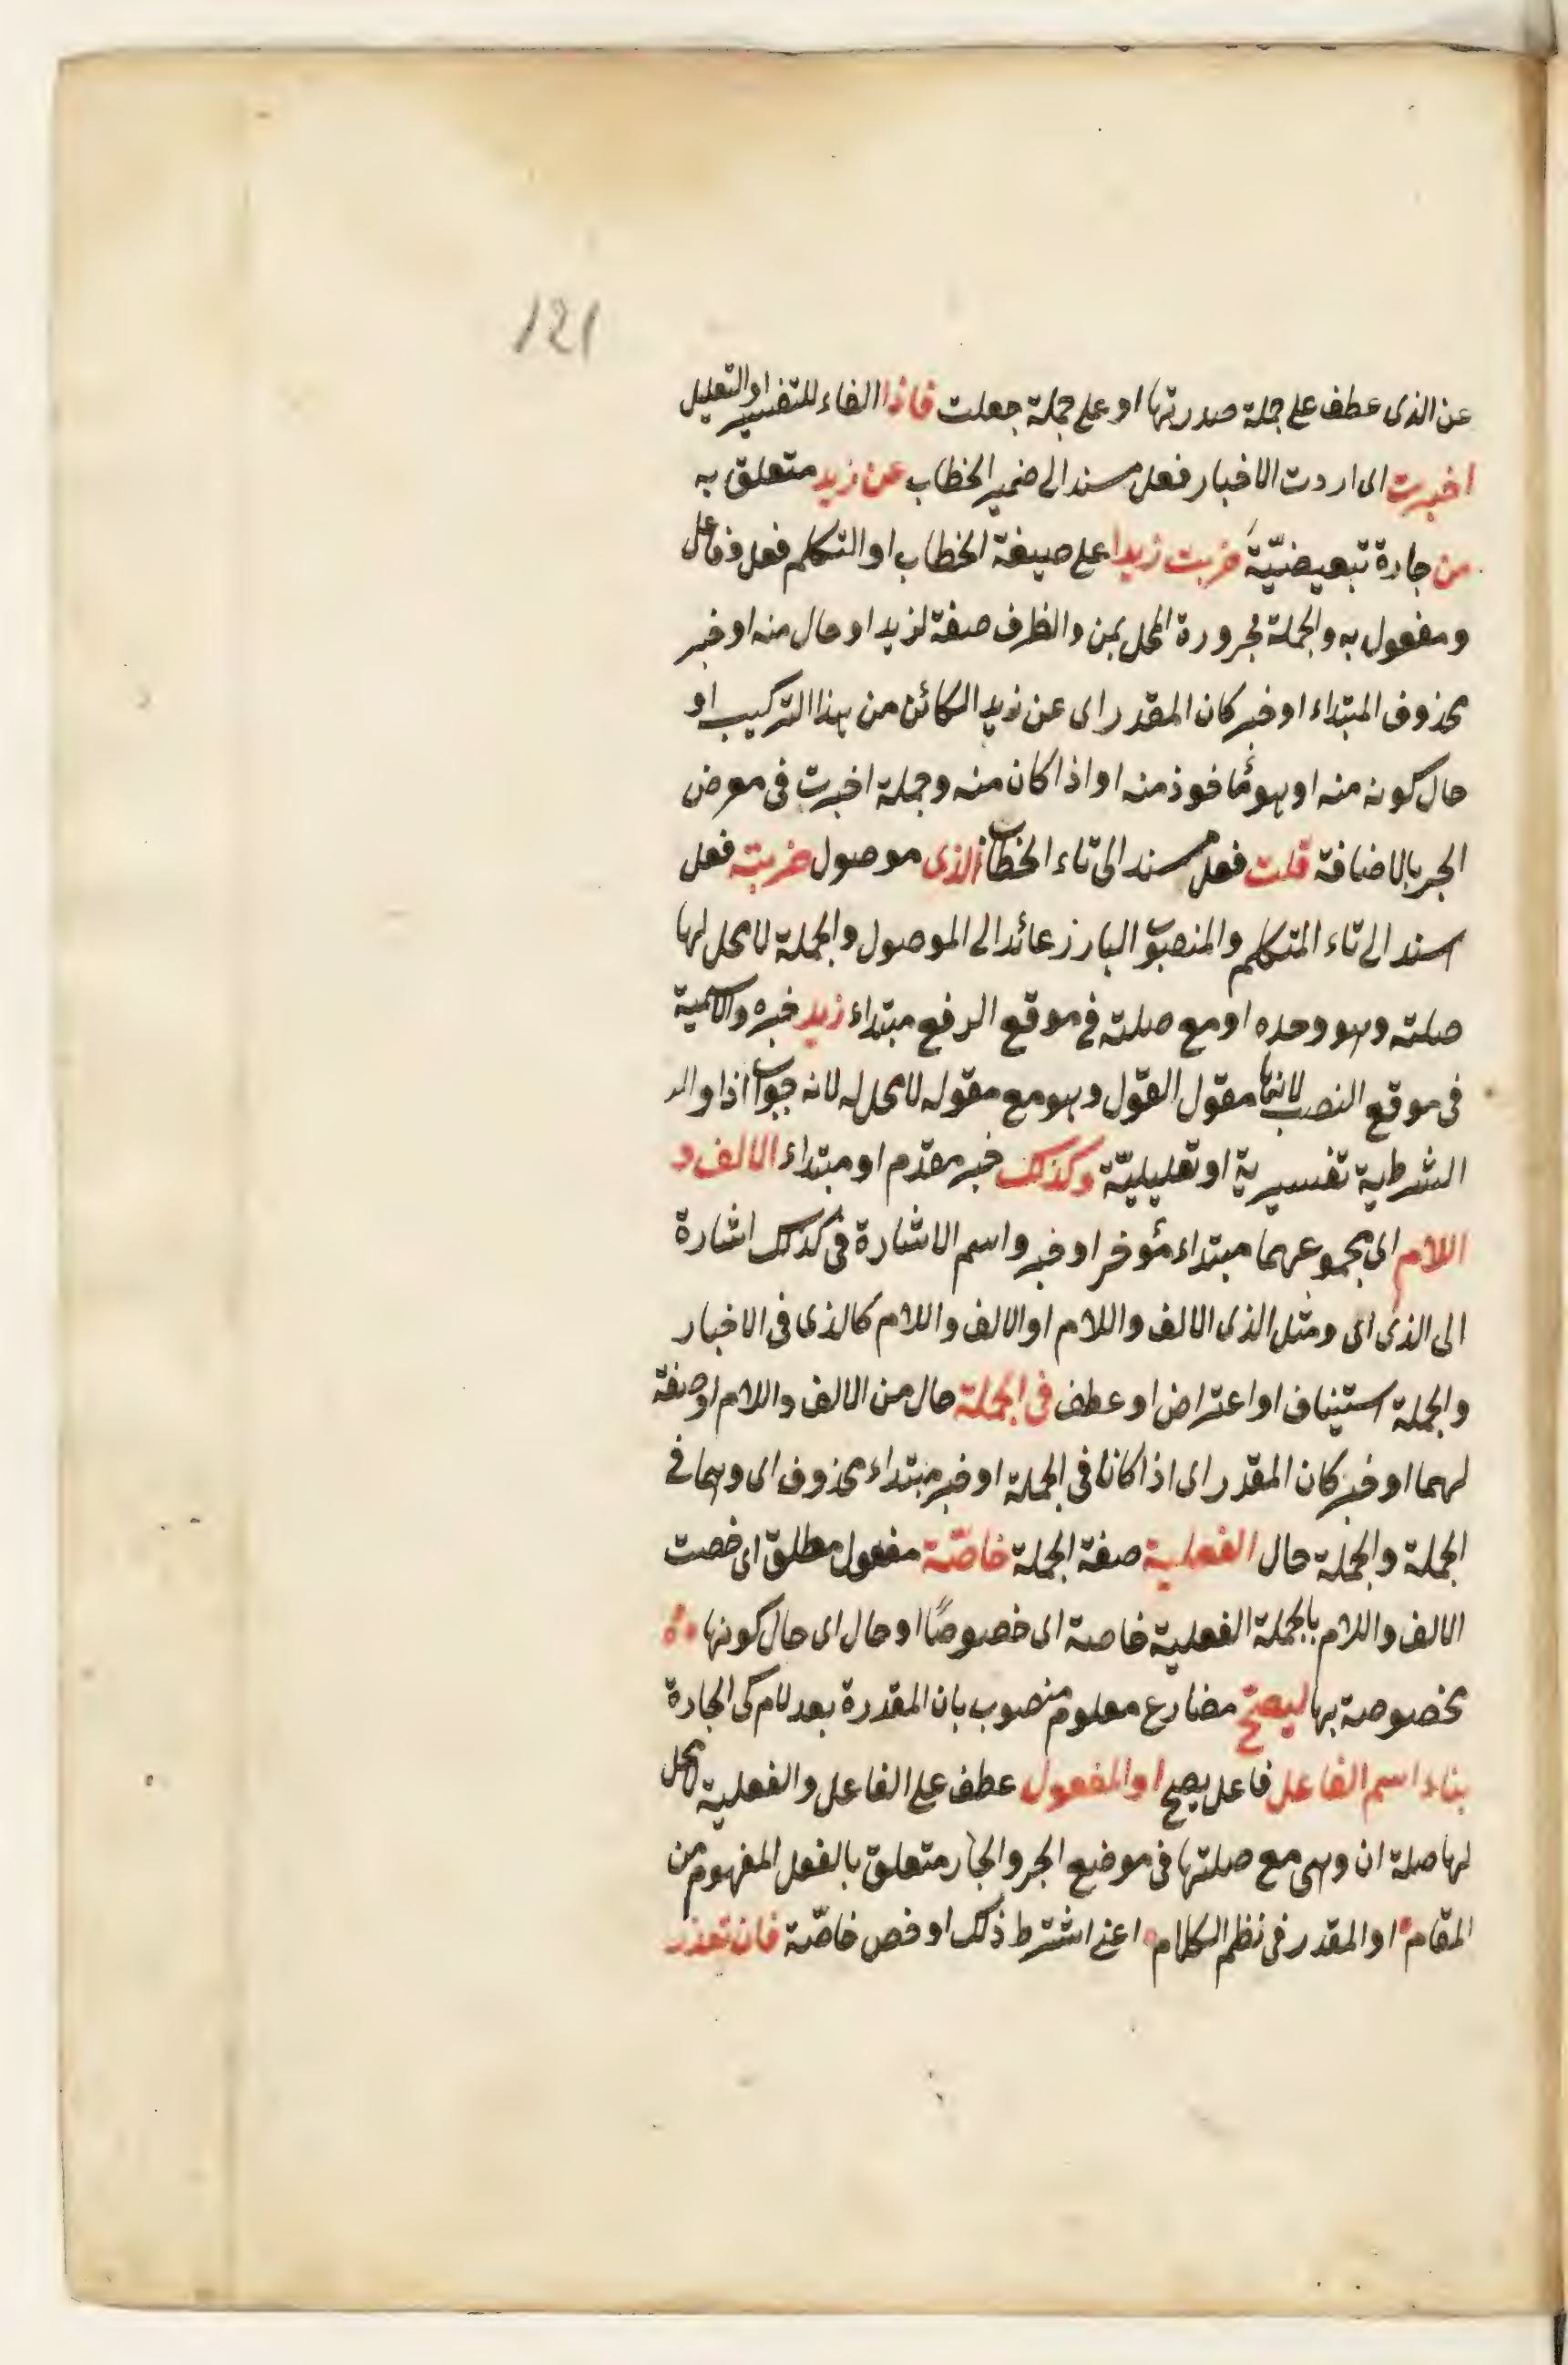 121
عن الذى عطف على جملة صدرتها او على جملة جعلت فاذا الفاء للتفسير او التعليل
اخبرت اى اردت الاخبار فعل مسند الى ضمير الخطاب عن زيد متعلق به
من جارة تبعيضيّة ضربت زيدا على صيغة الخطاب او التكلم فعل وفاعل
ومفعول به والجملة مجرورة المحل بمن والظرف صفة لزيد او حال منه او خبر
محذوف المبتداء او خبر كان المقدر اى عن زيد الكائن من هذا التركيب او
حال كونه منه او هو مأخوذ منه او اذا كان منه وجملة اخبرت فى موضع
الجر بالاضافة قلت فعل مسند الى تاء الخطاب الذى موصول ضربته فعل
اسند الى تاء المتكلم والمنصوب البارز عائد الى الموصول والجملة لا محل لها
صلته وهو وحده او مع صلته فى موقع الرفع مبتداء زيد خبره والاسمية
فى موقع النصب لانها مقول القول وهو مع مقوله لا محل له لانه جواب اذا
الشرطية تفسيرية او تعليليّة وكذلك خبر مقدم او مبتداء الالف و
اللام اى مجموعهما مبتداء مؤخر او خبر واسم الاشارة فى كذلك اشارة
الى الذى اى ومثل الذى الالف واللام او الالف واللام كالذى فى الاخبار
والجملة استيناف او اعتراض او عطف فى الجملة حال من الالف واللام او صفة
لهما او خبر كان المقدر اى اذا كانا فى الجملة او خبر مبتداء محذوف اى وهما فى
الجملة والجملة حال الفعلية صفة الجملة خاصّة مفعول مطلق اى خصت
الالف واللام بالجملة الفعلية خاصة اى خصوصًا او حال اى حال كونها
مخصوصة بها ليصح مضارع معلوم منصوب بان المقدرة بعد لام كى الجارة
بناء اسم الفاعل فاعل يصح او المفعول عطف على الفاعل والفعلية لا محل
لها صلة ان وهى مع صلتها فى موضع الجر والجار متعلق بالفعل المفهوم من
المقام او المقدر فى نظم الكلام اعنى اشترط ذلك او خص خاصّة فان تعذر